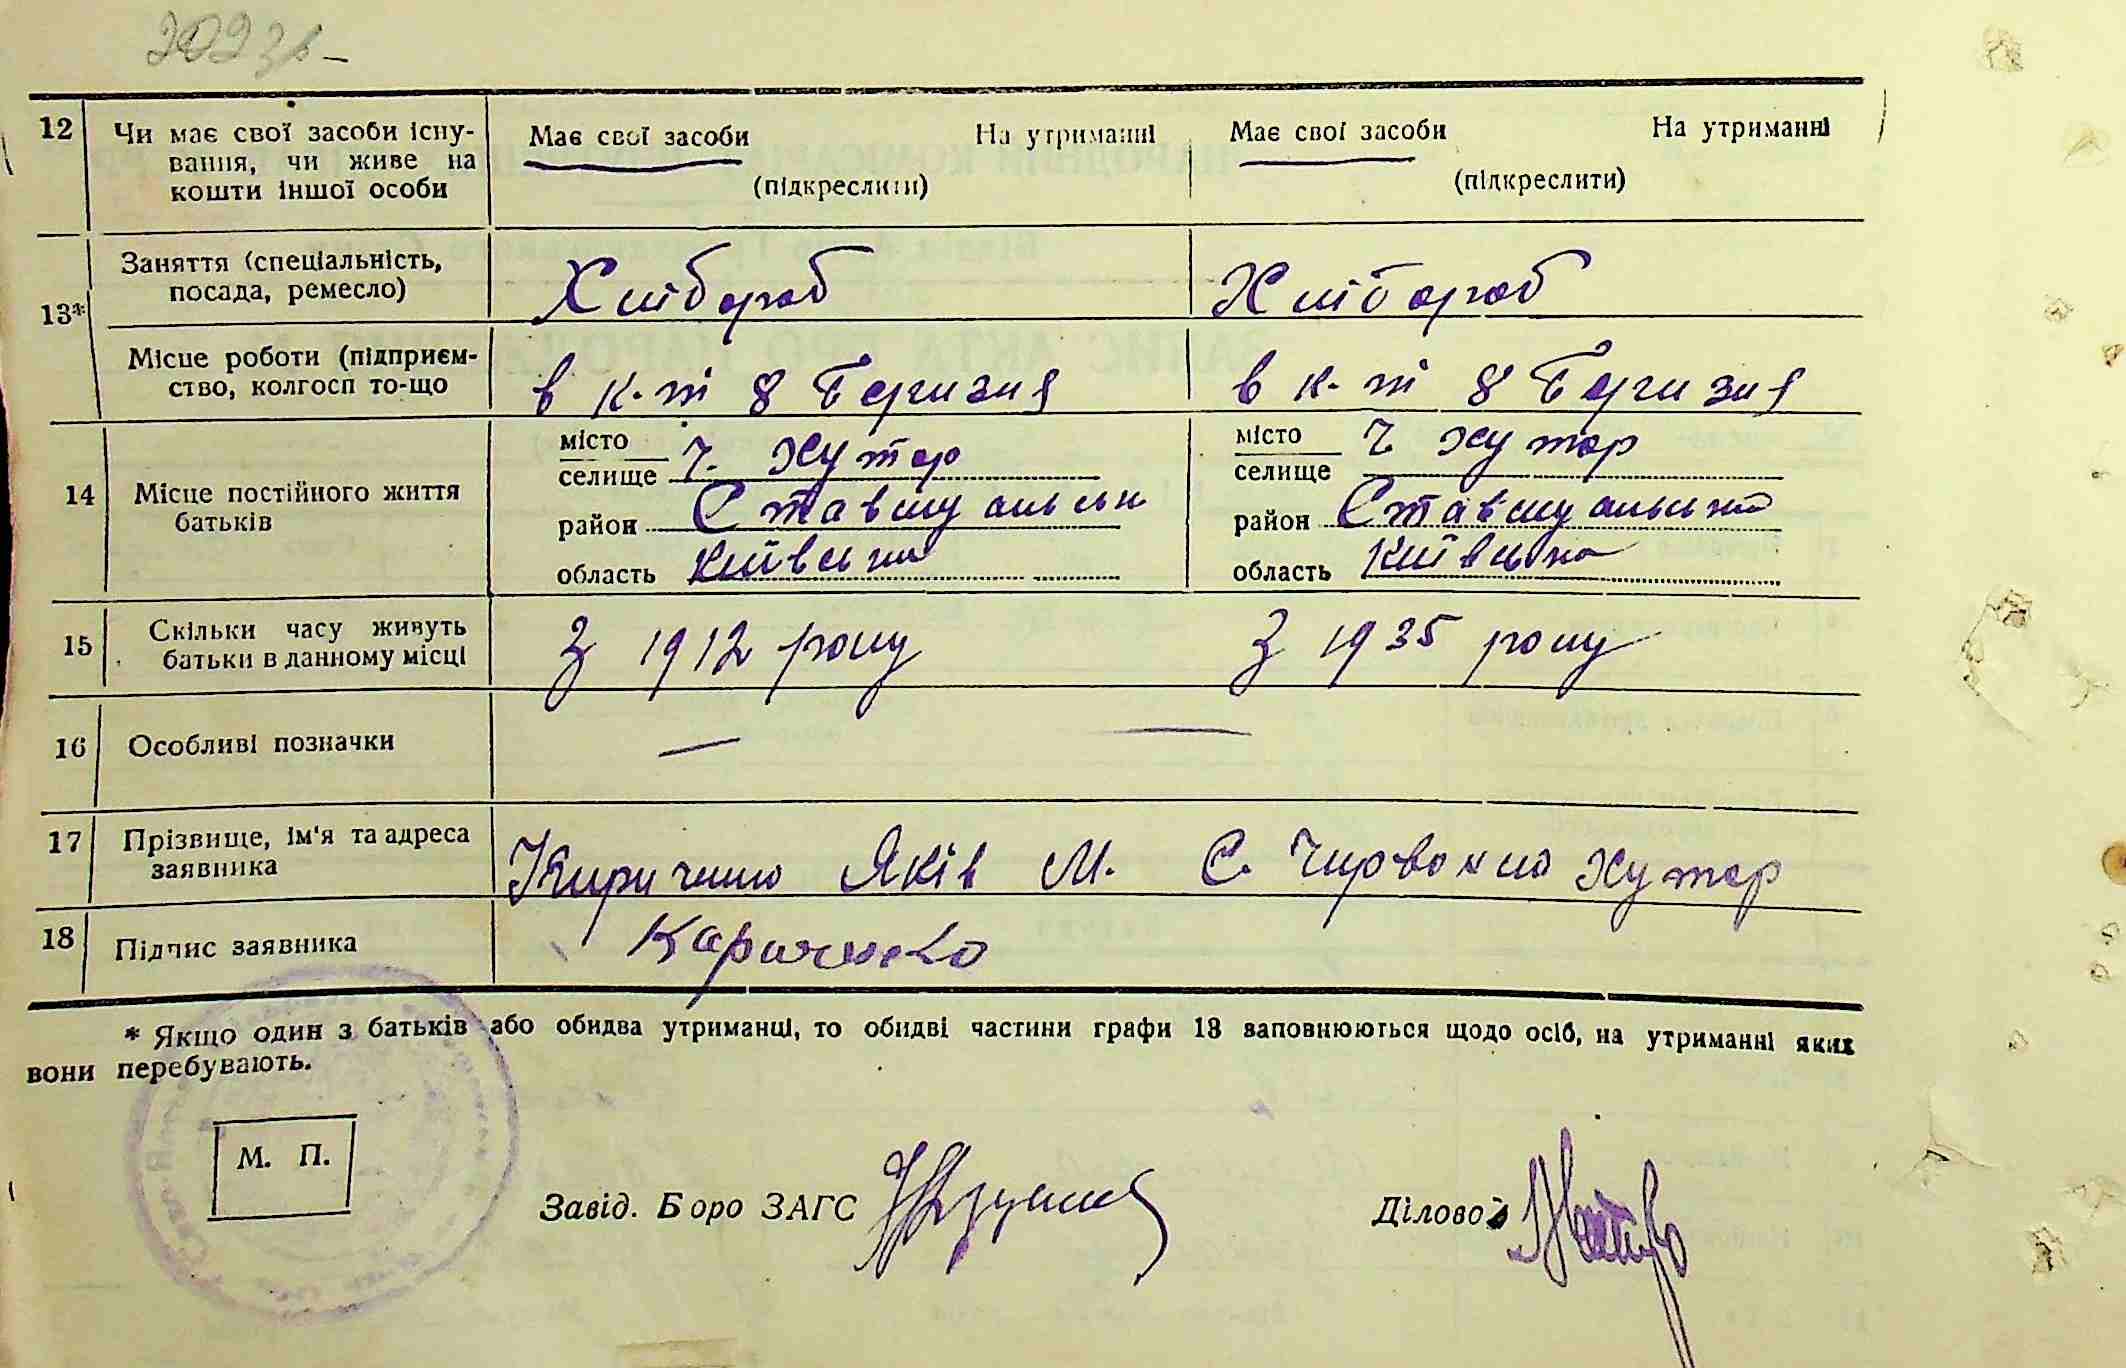 12 Чи має свої засоби існу-
вання, чи живе на
кошти іншої особи
Має свої засоби На утриманні
(підкреслити)
Має свої засоби На утриманні
(підкреслити)
13*
Заняття (спеціальність,
посада, ремесло)
Хлібороб Хлібороб
Місце роботи (підприєм-
ство, колгосп то-що
в к-т 8 Березня в к-т 8 Березня
14 Місце постійного життя
батьків
місто
селище Ч. Хутор
район
область Київська
місто
селище Ч Хутор
район
область Київська
15 Скільки часу живуть
батьки в данному місці
З 1912 року З 1935 року
16 Особливі позначки
— —
17 Прізвище, ім'я та адреса
заявника
Яків М. С. Хутор
18 Підпис заявника
* Якщо один з батьків або обидва утриманці, то обидві частини графи 13 заповнюються щодо осіб, на утриманні яких
вони перебувають.
М. П.
Завід. Бюро ЗАГС
Діловод